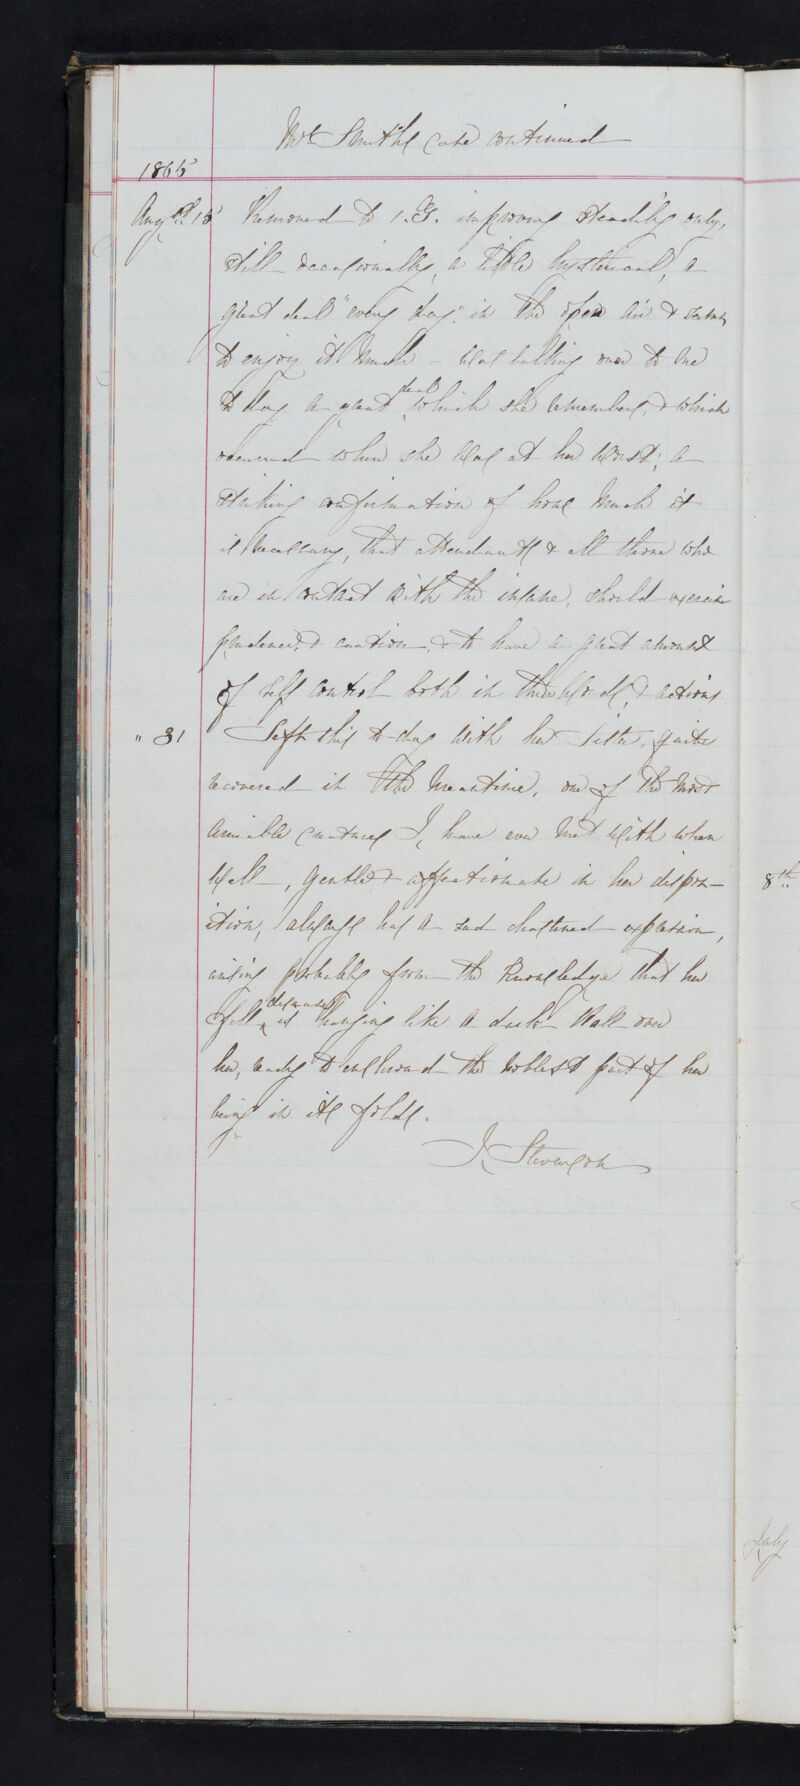 Mrs Smith's case continued
1865
Augst 15 Removed to 1. G. improving steadily only,
still occasionally, a little hysterical, a
great deal "every day" in the open air & seems
to enjoy it much - Was talking over to me
to day a great deal which she remembers, & which
occurred when she was at her worst; a
striking confirmation of how much it
is necessary, that attendants & all those who
are in contact with the insane, should exercise
prudence & caution, & to have a great amount
of self control both in their words, & actions
" 31 Left this to-day with her sister, quite
recovered in the meantime, one of the most
amiable creatures I have ever met with when
well -, gentle & affectionate in her dispos-
ition, always has a sad chastened expression,
arising probably from the knowledge that her
fell disease is hanging like a dark Wall over
her, ready to enshroud the noblest part of her
being in its folds.
J. Stevenson
8th
July